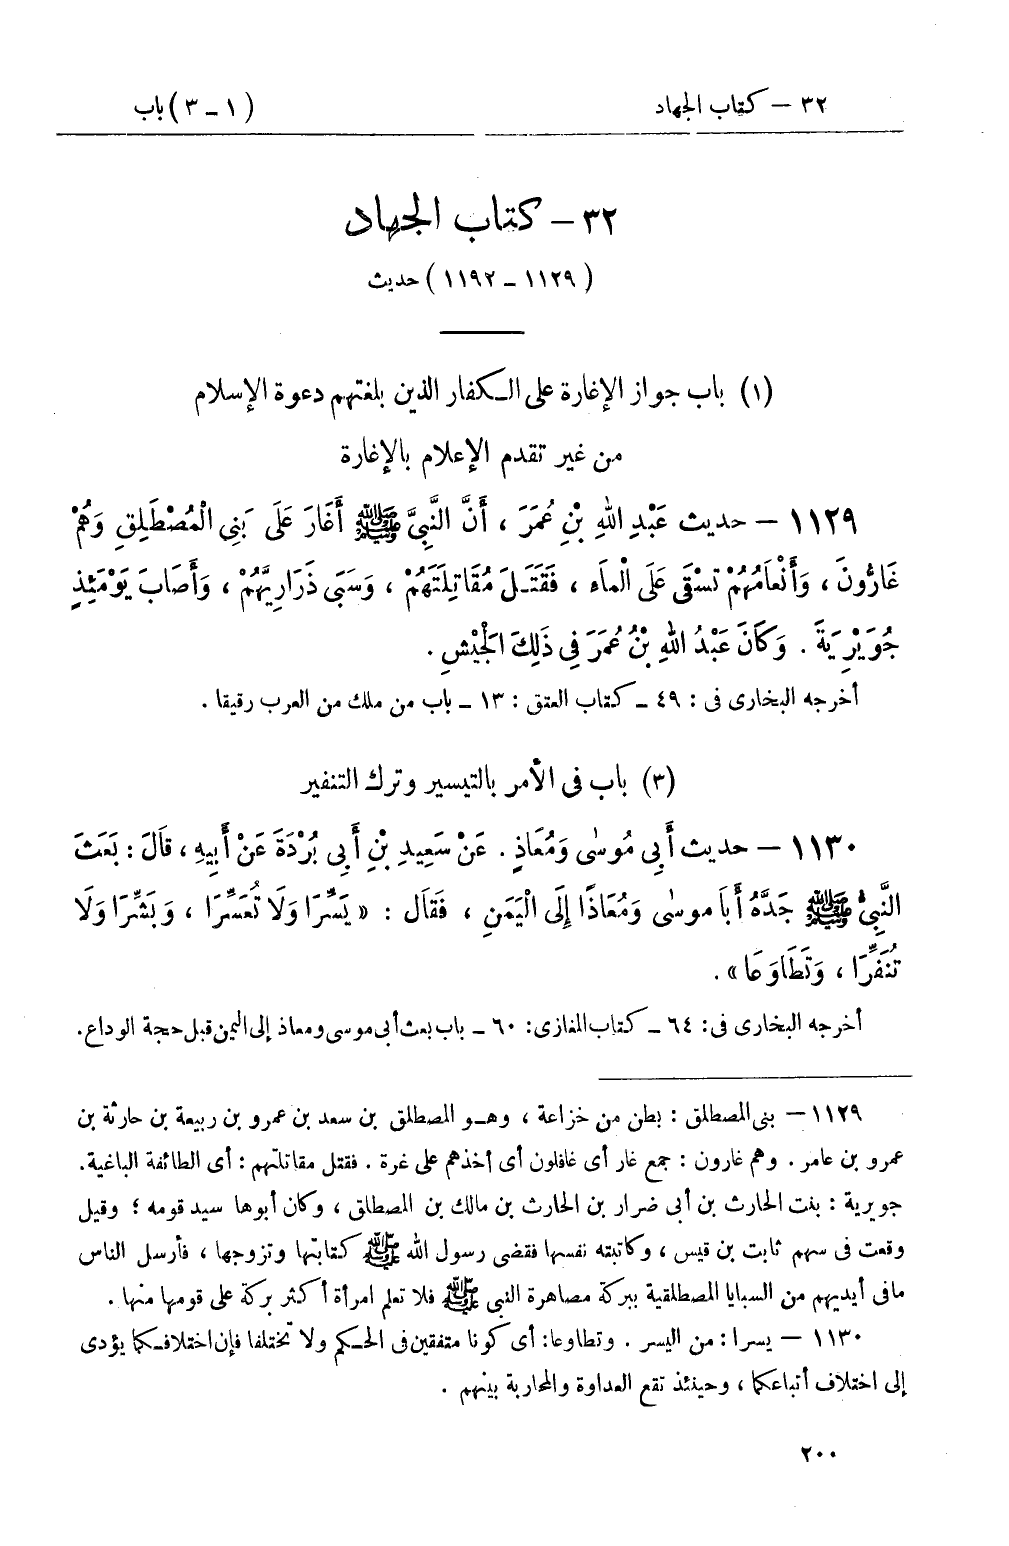 ٣٢ – كتاب الجهاد (١ – ٣) باب
٣٢ – كتاب الجهاد
(١١٢٩ – ١١٩٢) حديث
(١) باب جواز الإغارة على الكفار الذين بلغتهم دعوة الإسلام
من غير تقدم الإعلام بالإغارة
١١٢٩ – حديث عَبْدِ اللهِ بْنِ عُمَرَ ، أَنَّ النَّبِيَّ ﷺ أَغَارَ عَلَى بَنِى الْمُصْطَلِقِ وَهُمْ
غَارُّونَ ، وَأَنْعَامُهُمْ تُسْقَى عَلَى الْمَاءِ ، فَقَتَلَ مُقَاتِلَتَهُمْ ، وَسَبَى ذَرَارِيَّهُمْ ، وَأَصَابَ يَوْمَئِذٍ
جُوَيْرِيَةَ . وَكَانَ عَبْدُ اللهِ بْنُ عُمَرَ فِى ذَلِكَ الْجَيْشِ .
أخرجه البخارى فى : ٤٩ – كتاب العتق : ١٣ – باب من ملك من العرب رقيقا .
(٣) باب فى الأمر بالتيسير وترك التنفير
١١٣٠ – حديث أَبِى مُوسٰى وَمُعَاذٍ . عَنْ سَعِيدِ بْنِ أَبِى بُرْدَةَ عَنْ أَبِيهِ ، قَالَ : بَعَثَ
النَّبِىُّ ﷺ جَدَّهُ أَبَا موسٰى وَمُعَاذًا إِلَى الْيَمَنِ ، فَقَال : « يَسِّرَا وَلَا تُعَسِّرَا ، وَبَشِّرَا وَلَا
تُنَفِّرَا ، وَتَطَاوَعَا » .
أخرجه البخارى فى: ٦٤ – كتاب المغازى: ٦٠ – باب بعث أبى موسى ومعاذ إلى اليمن قبل حجة الوداع.
١١٢٩ – بنى المصطلق : بطن من خزاعة ، وهو المصطلق بن سعد بن عمرو بن ربيعة بن حارثة بن
عمرو بن عامر . وهم غارون : جمع غار أى غافلون أى أخذهم على غرة . فقتل مقاتلتهم : أى الطائفة الباغية.
جويرية : بنت الحارث بن أبى ضرار بن الحارث بن مالك بن المصطلق ، وكان أبوها سيد قومه ؛ وقيل
وقعت فى سهم ثابت بن قيس ، وكاتبته نفسها فقضى رسول الله ﷺ كتابتها وتزوجها ، فأرسل الناس
مافى أيديهم من السبايا المصطلقية ببركة مصاهرة النبى ﷺ فلا تعلم امرأة أكثر بركة على قومها منها .
١١٣٠ – يسرا : من اليسر . وتطاوعا: أى كونا متفقين فى الحكم ولا تختلفا فإن اختلافكما يؤدى
إلى اختلاف أتباعكما ، وحينئذ تقع العداوة والمحاربة بينهم .
٢٠٠